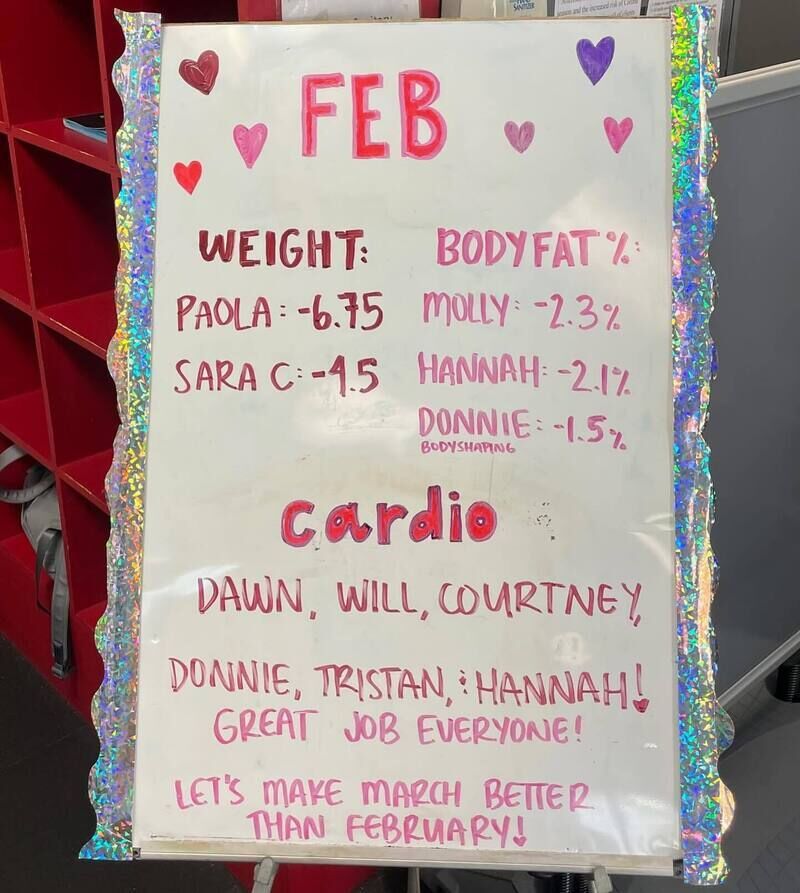 SANITIZER
FEB
WEIGHT:
PAOLA: -6.75
SARA C: -4.5
BODYFAT %:
MOLLY: -2.3%
HANNAH: -2.1%
DONNIE: -1.5%
BODYSHAPING
cardio
DAWN, WILL, COURTNEY,
DONNIE, TRISTAN, & HANNAH!
GREAT JOB EVERYONE!
LET'S MAKE MARCH BETTER
THAN FEBRUARY!